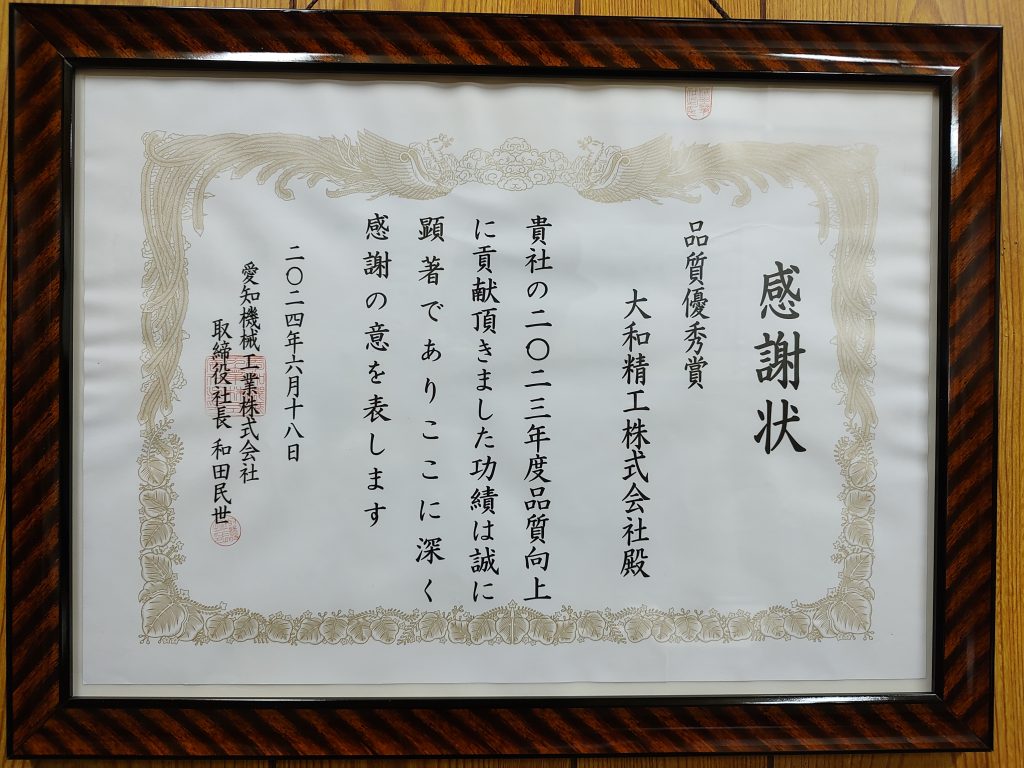 感謝状
品質優秀賞
大和精工株式会社殿
貴社の二〇二三年度品質向上
に貢献頂きました功績は誠に
顕著でありここに深く
感謝の意を表します
二〇二四年六月十八日
愛知機械工業株式会社
取締役社長 和田民世